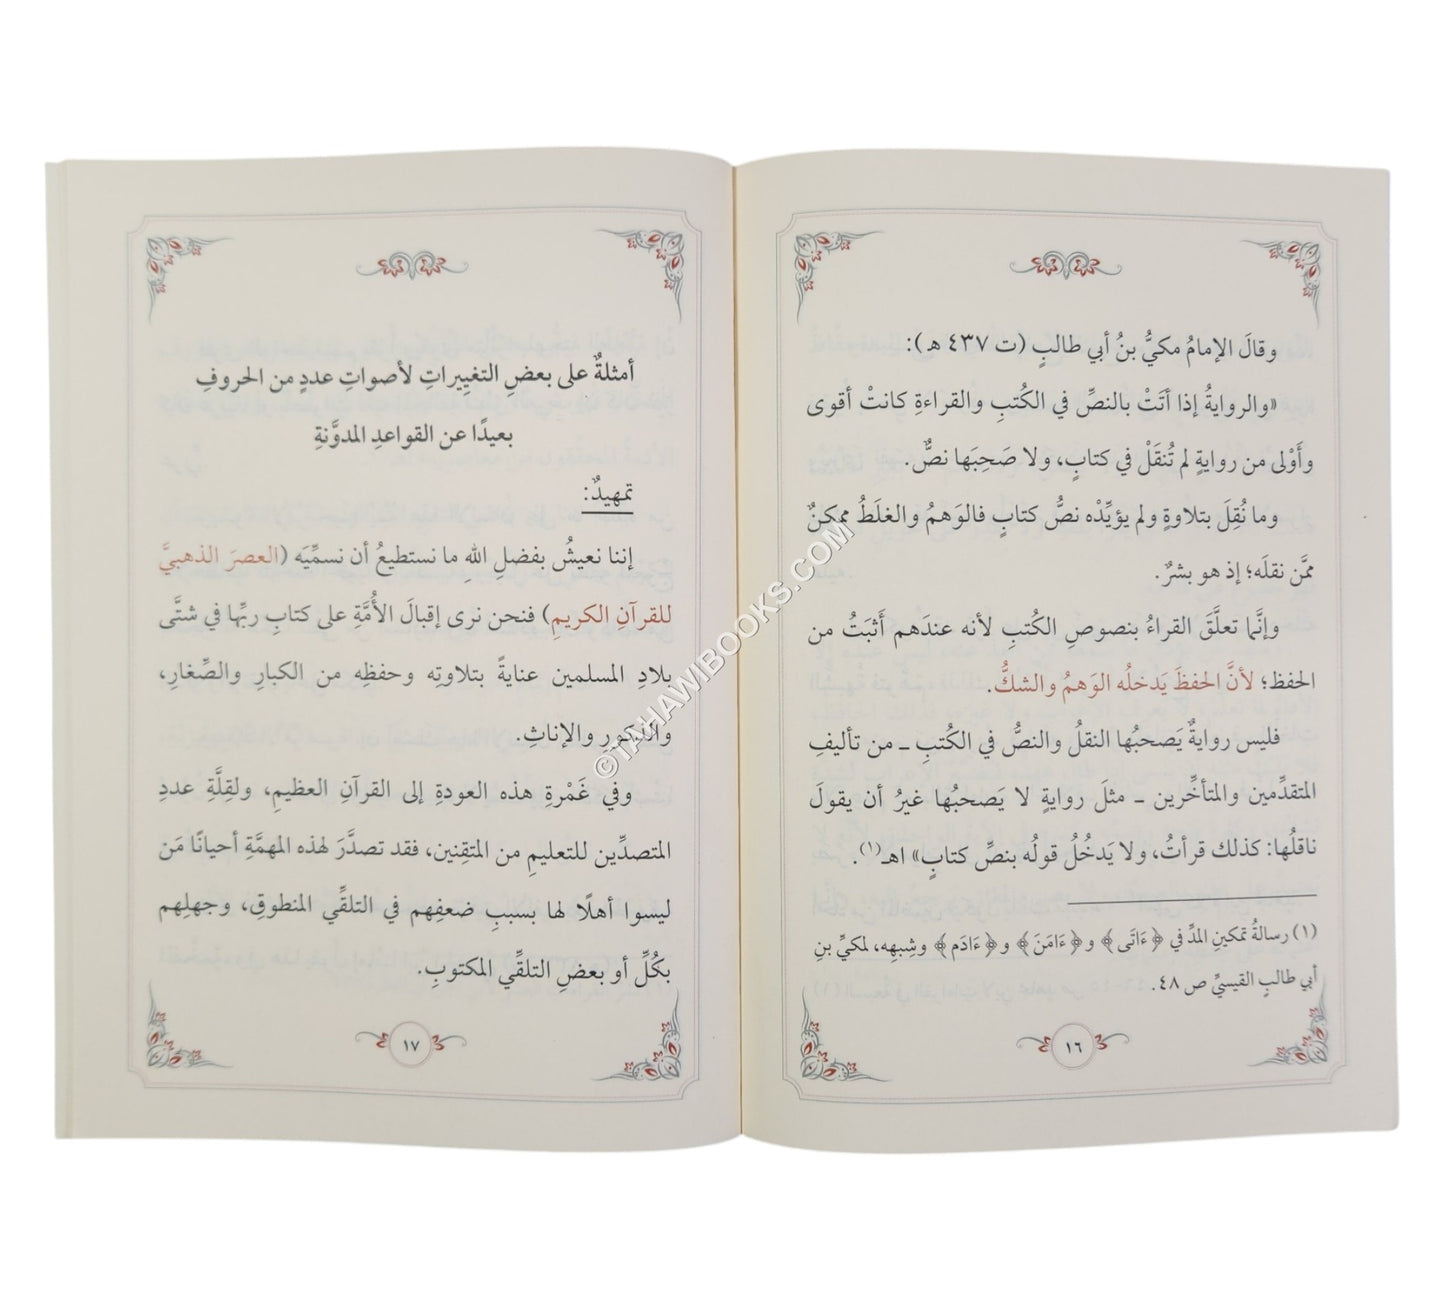 وقالَ الإمامُ مكيُّ بنُ أبي طالبٍ (ت ٤٣٧ هـ):
«والروايةُ إذا أتَتْ بالنصِّ في الكُتبِ والقراءةِ كانتْ أقوى
وأَوْلى من روايةٍ لم تُنقَلْ في كتابٍ، ولا صَحِبَها نصٌّ.
وما نُقِلَ بتلاوةٍ ولم يؤيِّدْه نصُّ كتابٍ فالوَهمُ والغلَطُ ممكنٌ
ممَّن نقلَه؛ إذ هو بشرٌ.
وإنَّما تعلَّقَ القراءُ بنصوصِ الكُتبِ لأنه عندَهم أَثبَتُ من
الحفظ؛ لأنَّ الحفظَ يَدخلُه الوَهمُ والشكُّ.
فليس روايةٌ يَصحبُها النقلُ والنصُّ في الكُتبِ ـ من تأليفِ
المتقدِّمين والمتأخِّرين ـ مثلَ روايةٍ لا يَصحبُها غيرُ أن يقولَ
ناقلُها: كذلك قرأتُ، ولا يَدخُلُ قولُه بنصِّ كتابٍ» اهـ(١).
(١) رسالةُ تمكينِ المدِّ في ﴿ءَاتَى﴾ و﴿ءَامَنَ﴾ و﴿ءَادَم﴾ وشِبهِه، لمكيِّ بنِ
أبي طالبٍ القيسيِّ ص ٤٨.
١٦
أمثلةٌ على بعضِ التغيِيراتِ لأصواتِ عددٍ من الحروفِ
بعيدًا عن القواعدِ المدوَّنةِ
تمهيدٌ:
إننا نعيشُ بفضلِ اللهِ ما نستطيعُ أن نسمِّيَه (العصرَ الذهبيَّ
للقرآنِ الكريمِ) فنحن نرى إقبالَ الأُمَّةِ على كتابِ ربِّها في شتَّى
بلادِ المسلمين عنايةً بتلاوتِه وحفظِه من الكبارِ والصِّغارِ،
والذكورِ والإناثِ.
وفي غَمْرةِ هذه العودةِ إلى القرآنِ العظيمِ، ولقِلَّةِ عددِ
المتصدِّين للتعليمِ من المتقِنين، فقد تصدَّرَ لهذه المهمَّةِ أحيانًا مَن
ليسوا أهلًا لها بسببِ ضعفِهم في التلقِّي المنطوقِ، وجهلِهم
بكُلِّ أو بعضِ التلقِّي المكتوبِ.
١٧
©TAHAWIBOOKS.COM